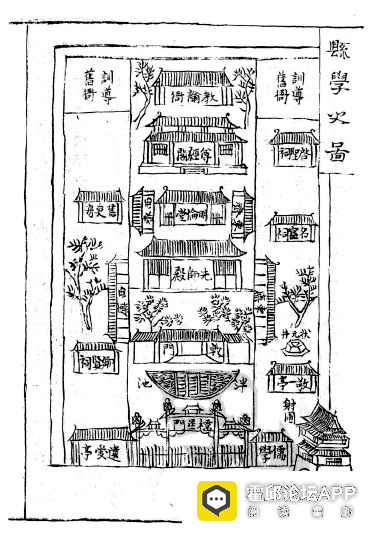 縣學之圖
訓導舊衙
教諭衙
訓導舊衙
尊經閣
啓聖祠
明倫堂
名宦祠
先師殿
狀元井
戟門
鄉賢祠
泮池
敬一亭
射圃
櫺星門
遺愛亭
儒學
霍邱论坛APP
阅读霍邱